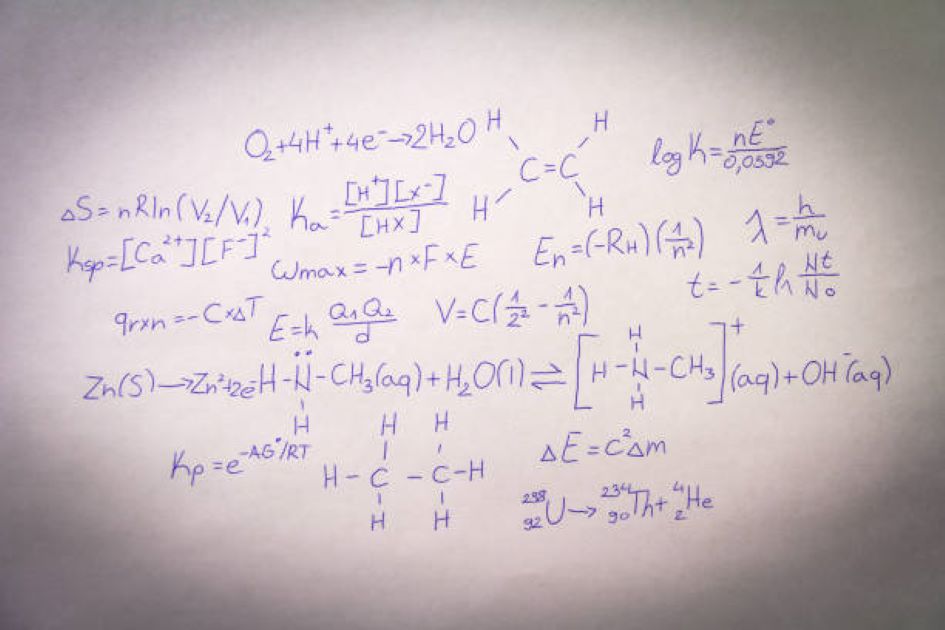 O₂+4H⁺+4e⁻→2H₂O
H H
C=C
H H
log K = nE° / 0,0592
ΔS = nRln(V₂/V₁)
Ka = [H⁺][X⁻] / [HX]
Ksp = [Ca²⁺][F⁻]²
ωmax = -n×F×E
En = (-RH)(1/n²)
λ = h / mυ
t = -1/k ln Nt/No
qrxn = -C×ΔT
E = k Q₁Q₂ / d
V = C(1/2² - 1/n²)
Zn(S)→Zn²⁺+2e⁻
H-N̈-CH₃(aq)+H₂O(l)⇌[H-N-CH₃]⁺(aq)+OH⁻(aq)
H H H
Kp = e^-AG°/RT
H H
H-C-C-H
H H
ΔE = c²Δm
²³⁸₉₂U→²³⁴₉₀Th+⁴₂He